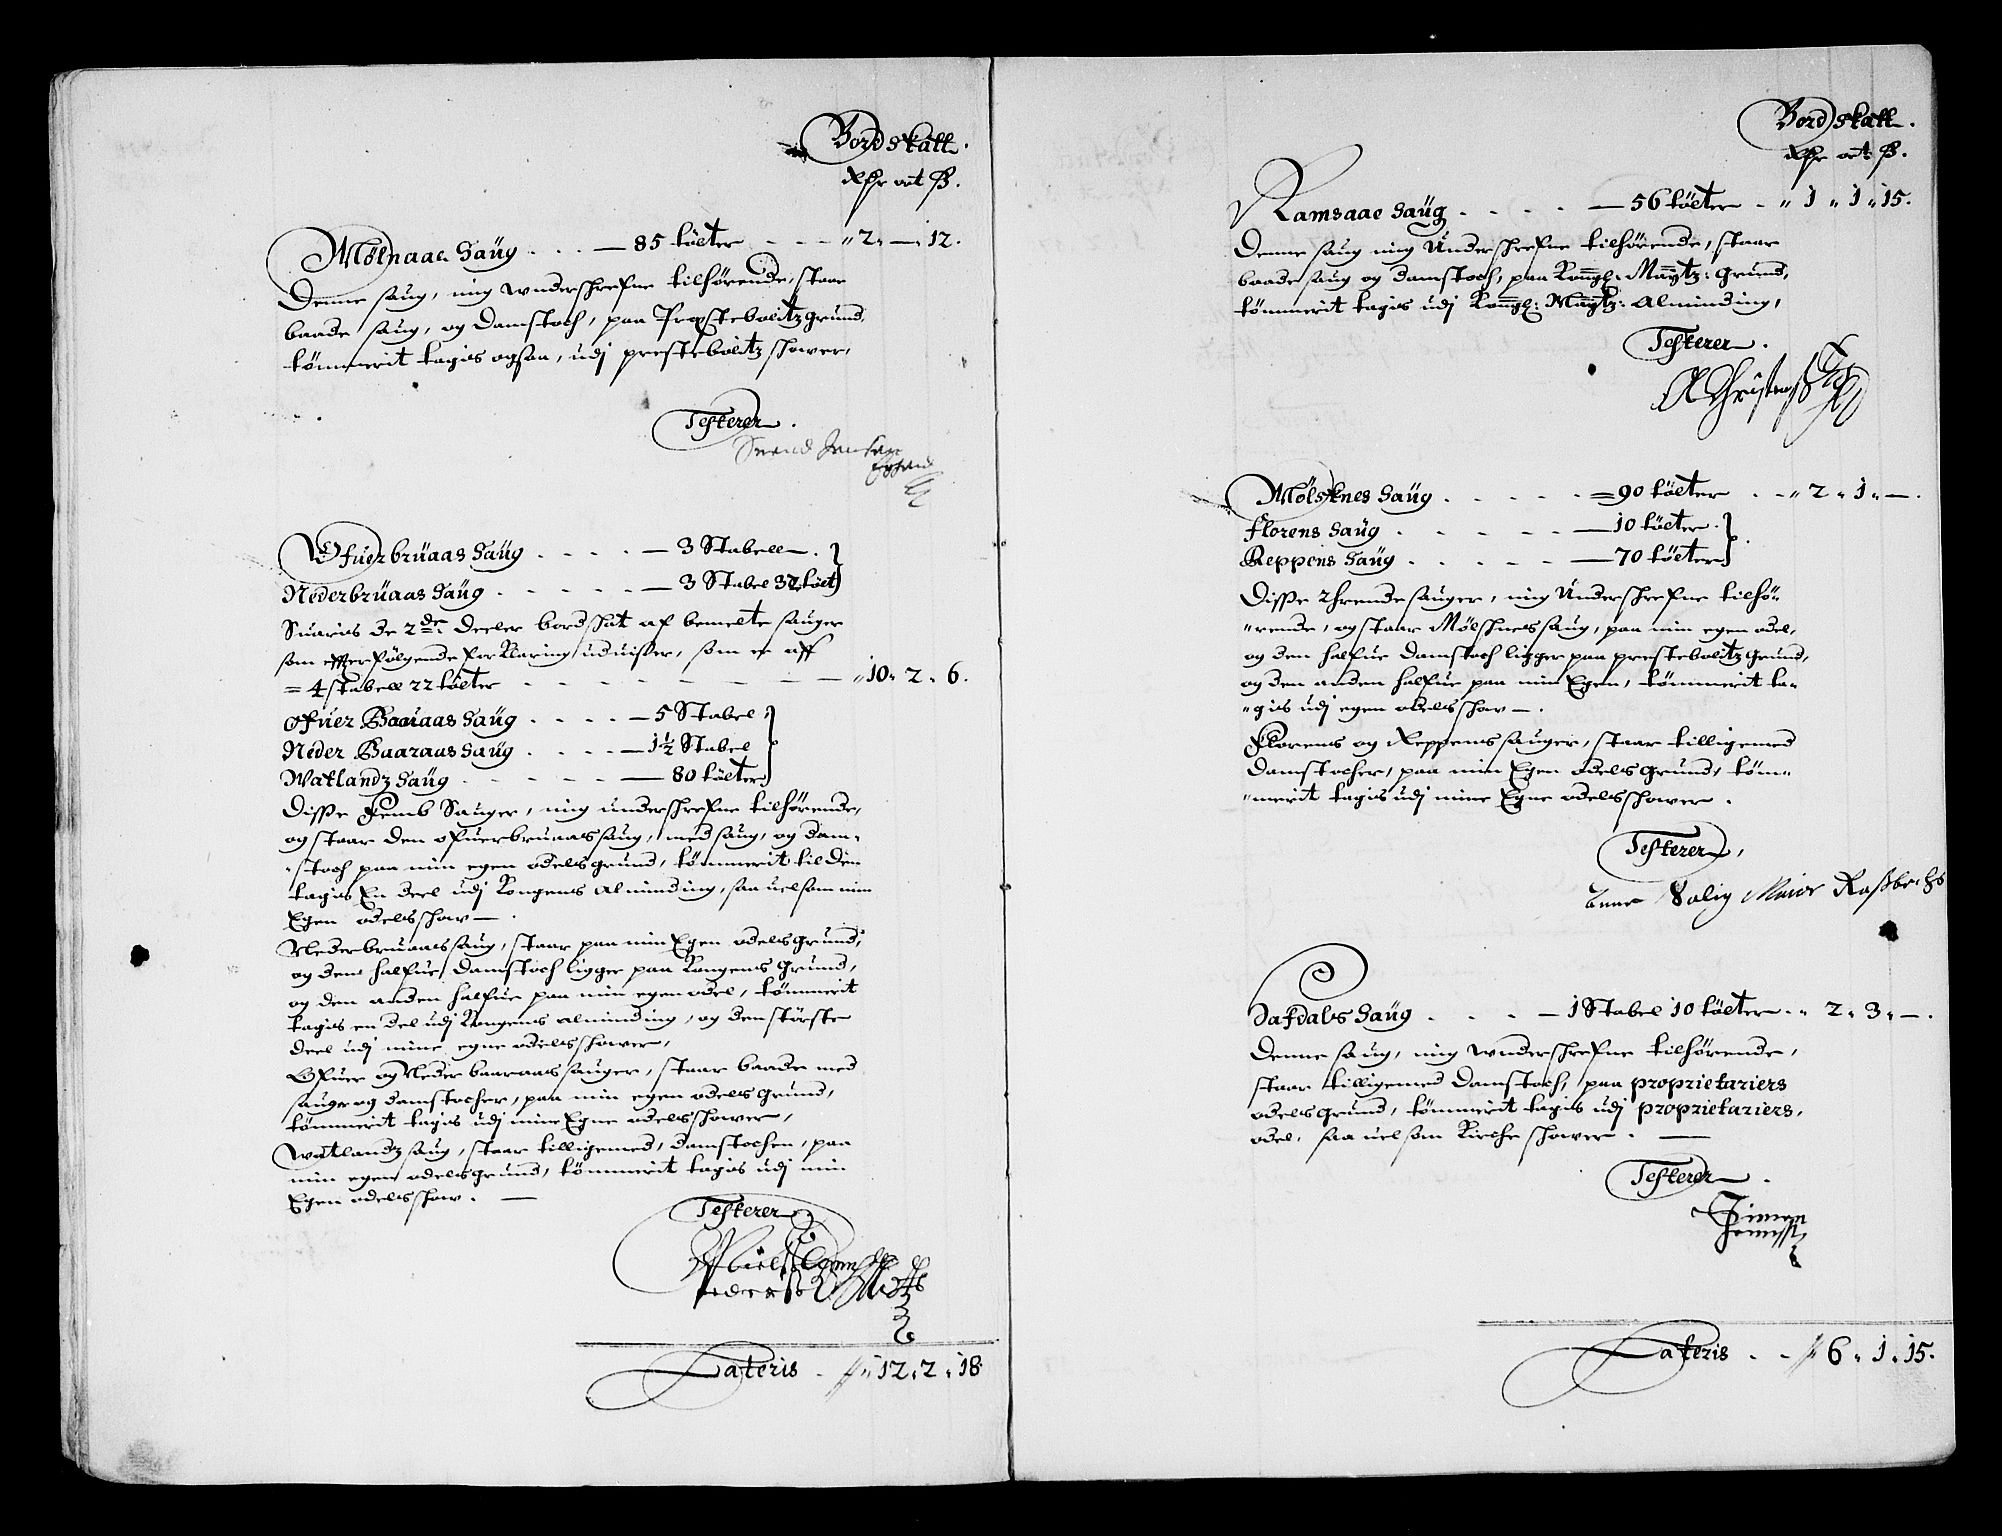 Bordskatt.
Rdr ort ß.
Mölnaae Saüg . . . — 85 tölter - - - " 2. — . 12.
Denne saug, mig underschrefne tilhörende, staar
baade saug, og damstoch, paa Prestebolitz grund,
tömmerit tagis ogsaa, udj prestebolitz schower,
Testerer.
Suend Jensen
Ofuerbrüaas Saüg . . . . — 3 Stabell — .
Nederbrüaas Saüg . . . . . — 3 Stabel 32 tölt
Suaris de 2de deeler bordschat af bemelte sauger
som effterfölgende forklaring uduisser, som er aff
= 4 stabell 22 tölter - - - - - - " 10. 2. 6.
Ofuer Baaraas Saüg . . . . — 5 Stabel
Neder Baaraas Saüg . . . . — 1½ Stabel
Watlandz Saüg . . . . . — 80 tölter
Disse Femb Sauger, mig underschrefne tilhörende,
og staar den ofuerbruaas saug, med saug, og dam-
-stoch paa min egen odels grund, tömmerit til den
tagis En deel udj Kongens Alminding, saa uelsom min
Egen odels schow — .
Nederbruaas saug, staar paa min Egen odels grund,
og dend halfue damstoch ligger paa Kongens Grund,
og den anden halfue paa min egen odel, tömmerit
tagis en del udj Kongens alminding, og den störste
deel udj mine egne odels schower,
Ofuer og Neder baaraas sauger, staar baade med
sauge og damstocher, paa min egen odels grund,
tömmerit tagis udj mine Egne odels schower,
Watlandz saug, staar tilligemed, damstochen, paa
min egen odels grund, tömmerit tagis udj min
Egen odels schow. —
Testerer
Niels
Pedersß
Lateris . 12. 2. 18
Bordskatt.
Rdr ort ß.
Ramsaae Saüg . . . . — 56 tölter . " 1 " 1 " 15.
Denne saug mig Underschrefne tilhörende, staar
baade saug og damstoch, paa Kongl: Maytz: Grund,
tömmerit tagis udj Kongl: Maytz: Alminding,
Testerer.
Christensß
Mölsknes Saüg . . . . . = 90 tölter . . " 2 " 1 " — .
Florens Saüg . . . . . . — 10 tölter .
Reppens Saüg . . . . . — 70 tölter
Disse 2hrende sauger, mig Underschrefne tilhö-
-rende, og staar Mölschnes saug, paa min egen odel,
og den halfue damstoch ligger paa prestebolitz grund,
og den anden halfue paa min Egen, tömmerit ta-
-gis udj egen odels schow — .
Florens og Reppens sauger, staar tilligemed
damstocher, paa min Egen odels grund, töm-
-merit tagis udj mine Egne odels schower .
Testerer,
Salig Maior Roßbachs
Dafdals Saüg . . . . — 1 Stabel 10 tölter . " 2 " 3 " — .
Denne saug, mig underschrefne tilhörende,
staar tilligemed damstoch, paa proprietariers
odels grund, tömmerit tagis udj proprietariers,
odel, saa uelsom Kirche schower . —
Testerer .
Simon
Jensß
Lateris . . 6 . 1 . 15.